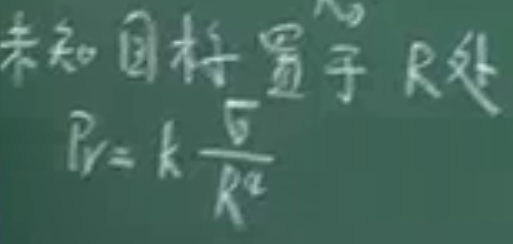 未知目标置于 R处
Pr = k σ/R⁴